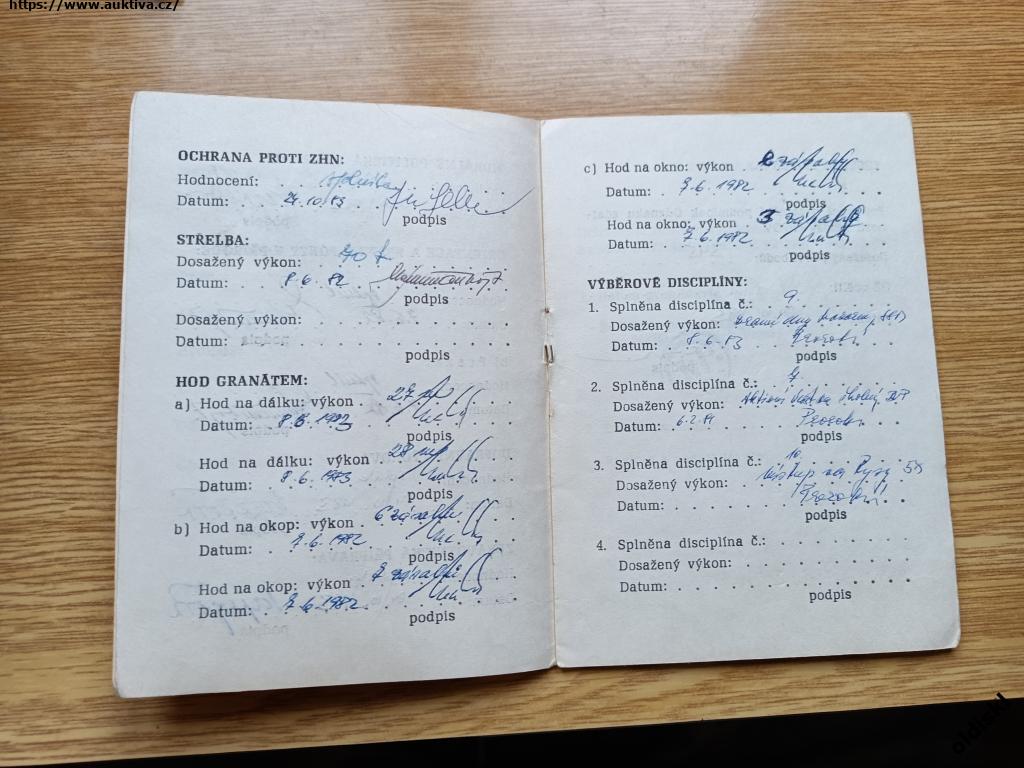 https://www.auktiva.cz/
OCHRANA PROTI ZHN:
Hodnocení:
Datum: . 21.10.83
podpis
STŘELBA:
Dosažený výkon: 70
Datum: . . . 8.6.82
podpis
Dosažený výkon: . . . . . . . . . .
Datum: . . . . . . . . . . . . . .
podpis
HOD GRANÁTEM:
a) Hod na dálku: výkon . 27 m
Datum: . . 8.6.1983
podpis
Hod na dálku: výkon . 28 m
Datum: . . 8.6.1983
podpis
b) Hod na okop: výkon . 6 zásahů
Datum: . . . 7.6.1982
podpis
Hod na okop: výkon . 7 zásahů
Datum: . . 7.6.1982
podpis
c) Hod na okno: výkon 2 zásahy
Datum: . . 7.6.1982
podpis
Hod na okno: výkon . 3 zásahy
Datum: . . 7.6.1982
podpis
VÝBĚROVÉ DISCIPLÍNY:
1. Splněná disciplína č.: . 9
Dosažený výkon:
Datum: . . . 8.6.83
podpis
2. Splněná disciplína č.: . 7
Dosažený výkon: Aktivní účast na
Datum: . 6.2.84
podpis
3. Splněná disciplína č.: . 10.
Dosažený výkon: Výstup na Rysy
Datum: . . .
podpis
4. Splněná disciplína č.: . . . . . . .
Dosažený výkon: . . . . . . . . . .
Datum: . . . . . . . . . . . . . .
podpis
oldiskl